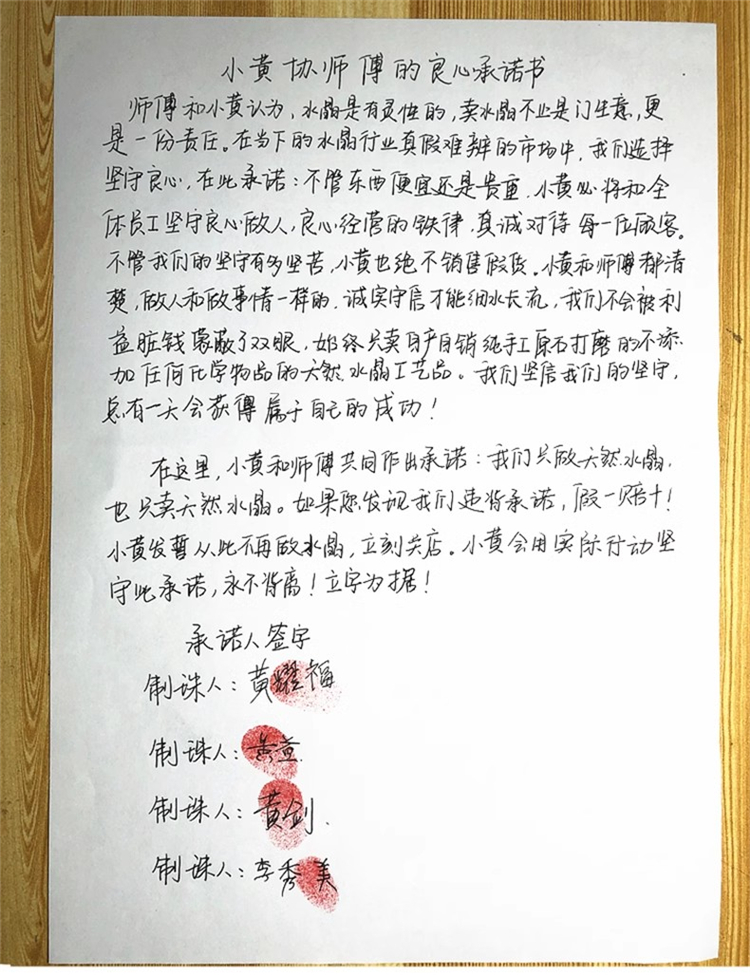 小黄协师傅的良心承诺书
师傅和小黄认为，水晶是有灵性的，卖水晶不止是门生意，更
是一份责任。在当下的水晶行业真假难辨的市场中，我们选择
坚守良心，在此承诺：不管东西便宜还是贵重，小黄必将和全
体员工坚守良心做人，良心经营的铁律，真诚对待每一位顾客。
不管我们的坚守有多坚苦，小黄也绝不销售假货。小黄和师傅都清
楚，做人和做事情一样的，诚实守信才能细水长流，我们不会被利
益脏钱蒙蔽了双眼，始终只卖自产自销纯手工原石打磨的不添
加任何化学物品的天然水晶工艺品。我们坚信我们的坚守，
总有一天会获得属于自己的成功！
在这里，小黄和师傅共同作出承诺：我们只做天然水晶，
也只卖天然水晶。如果您发现我们违背承诺，假一赔十！
小黄发誓从此不再做水晶，立刻关店。小黄会用实际行动坚
守此承诺，永不背离！立字为据！
承诺人签字
制珠人：黄耀福
制珠人：黄
制珠人：黄剑
制珠人：李秀美